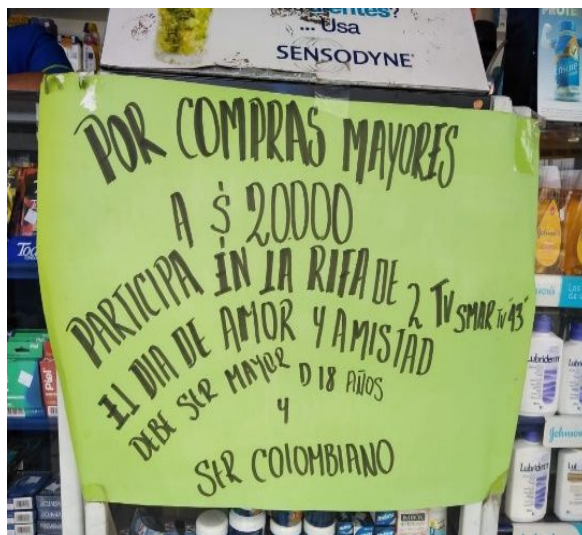 ... Usa
SENSODYNE
POR COMPRAS MAYORES
A $ 20.000
PARTICIPA EN LA RIFA DE 2 TV SMAR TV "43"
EL DIA DE AMOR Y AMISTAD
DEBE SER MAYOR D 18 AÑOS
Y
SER COLOMBIANO
Lubriderm
Johnson's
Lubriderm